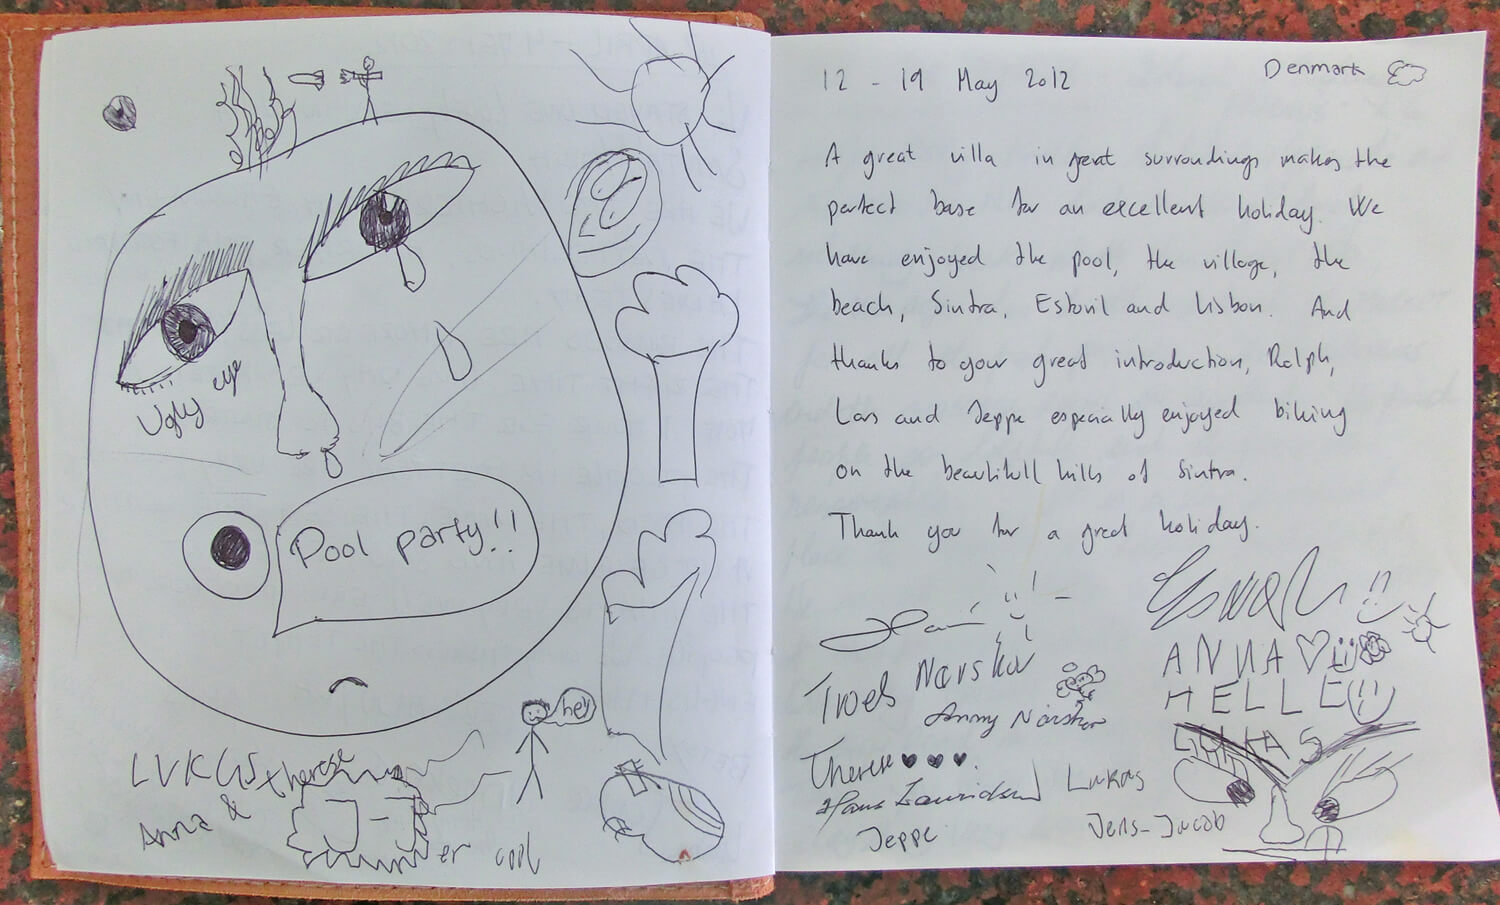 Ugly eye
Pool party!!
hey
LUKAS therese
Anna &
er cool
12 - 19 May 2012
Denmark
A great villa in great surroundings makes the
perfect base for an excellent holiday. We
have enjoyed the pool, the village, the
beach, Sintra, Estoril and Lisbon. And
thanks to your great introduction, Ralph,
Lars and Jeppe especially enjoyed biking
on the beautifull hills of Sintra.
Thank you for a great holiday.
ANNA
Troels Narskov
HELLE
Anny Narskov
LUKAS
Therese
Lukas
Hans Lauridsen
Jens-Jacob
Jeppe